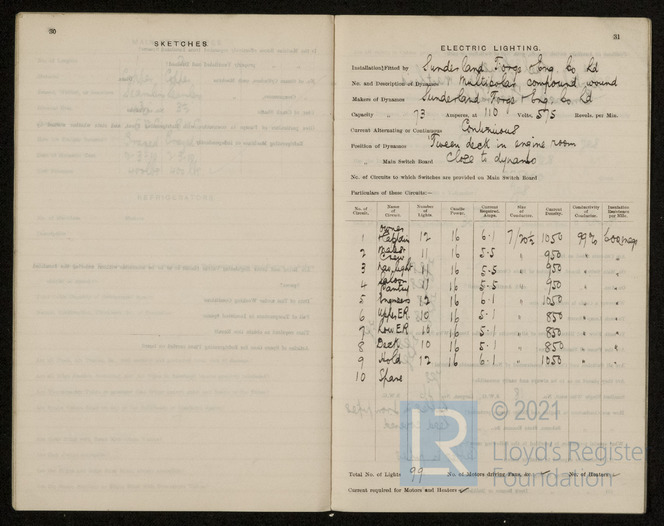 30
SKETCHES.
31
ELECTRIC LIGHTING.
Installation Fitted by Sunderland Forge & Eng. Co Ld
No. and Description of Dynamos Multipolar compound wound
Makers of Dynamos Sunderland Forge & Eng. Co Ld
Capacity 73 Amperes, at 110 Volts, 575 Revols. per Min.
Current Alternating or Continuous Continuous
Position of Dynamos Tween deck in engine room
" Main Switch Board Close to dynamo
No. of Circuits to which Switches are provided on Main Switch Board
Particulars of these Circuits:—
No. of Circuit. Name of Circuit. Number of Lights. Candle Power. Current Required, Amps. Size of Conductor. Current Density. Conductivity of Conductor. Insulation Resistance per Mile.
1 12 16 6.1 7/20 1050 99% 600 meg
2 Crew 11 16 5.5 " 950 " "
3 Nav. light 11 16 5.5 " 950 " "
4 Saloon Pantry 11 16 5.5 " 950 " "
5 Engineers 12 16 6.1 " 1050 " "
6 Upper ER 10 16 5.1 " 850 " "
7 Low ER 10 16 5.1 " 850 " "
8 Deck 10 16 5.1 " 850 " "
9 Hold 12 16 6.1 " 1050 " "
10 Spare
Total No. of Lights 99 No. of Motors driving Fans, &c. ✓ No. of Heaters ✓
Current required for Motors and Heaters ✓
LR
© 2021
Lloyd's Register
Foundation